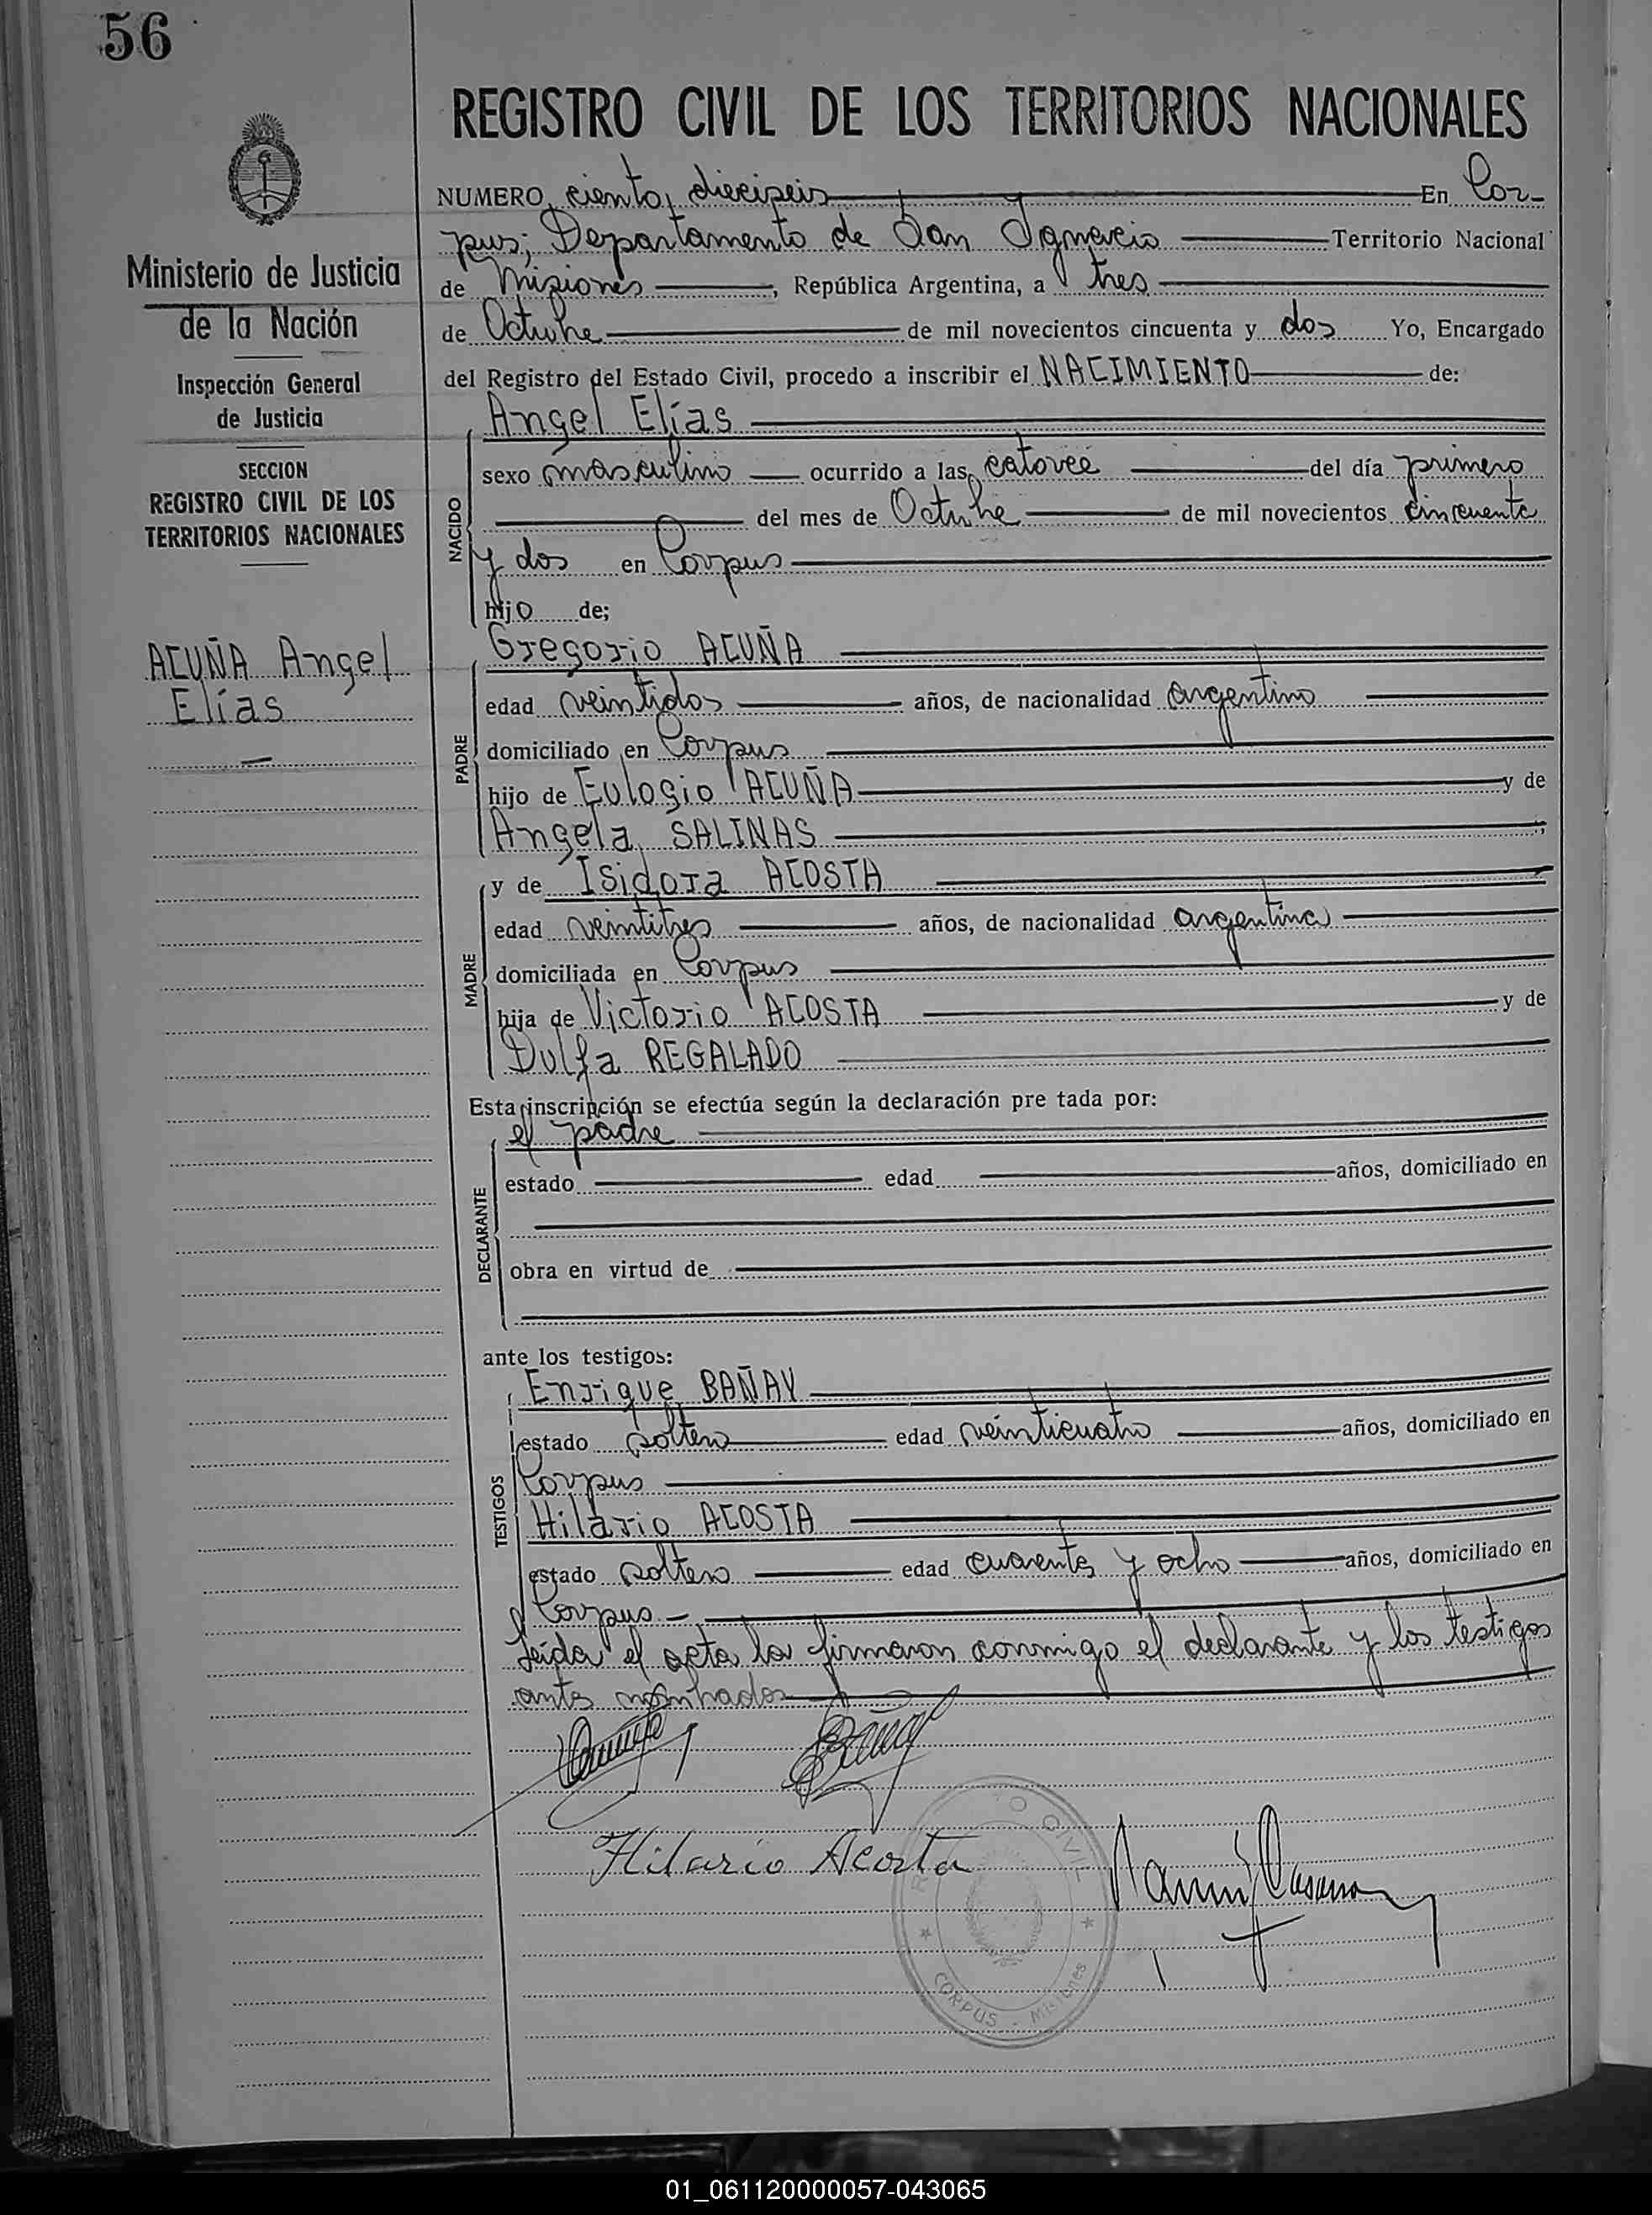 56
REGISTRO CIVIL DE LOS TERRITORIOS NACIONALES
Ministerio de Justicia
de la Nación
Inspección General
de Justicia
SECCION
REGISTRO CIVIL DE LOS
TERRITORIOS NACIONALES
ACUÑA Angel
Elías
NUMERO ciento dieciseis En Cor-
pus; Departamento de San Ignacio Territorio Nacional
de Misiones, República Argentina, a tres
de Octubre de mil novecientos cincuenta y dos Yo, Encargado
del Registro del Estado Civil, procedo a inscribir el NACIMIENTO de:
Angel Elías
NACIDO
sexo masculino ocurrido a las catorce del día primero
del mes de Octubre de mil novecientos cincuenta
y dos en Corpus
hijo de;
PADRE
Gregorio ACUÑA
edad veintidos años, de nacionalidad argentino
domiciliado en Corpus
hijo de Eulogio ACUÑA y de
Angela SALINAS ;
MADRE
y de Isidora ACOSTA
edad veintitres años, de nacionalidad argentina
domiciliada en Corpus
hija de Victorio ACOSTA y de
Dulfa REGALADO
Esta inscripción se efectúa según la declaración pre tada por:
DECLARANTE
el padre
estado edad años, domiciliado en
obra en virtud de
ante los testigos:
TESTIGOS
Enrique BAÑAY
estado soltero edad veinticuatro años, domiciliado en
Corpus
Hilario ACOSTA
estado soltero edad cuarenta y ocho años, domiciliado en
Corpus.-
Leída el acta la firmaron conmigo el declarante y los testigos
antes nombrados
Hilario Acosta
CIVIL
CORPUS - Misiones
01_061120000057-043065